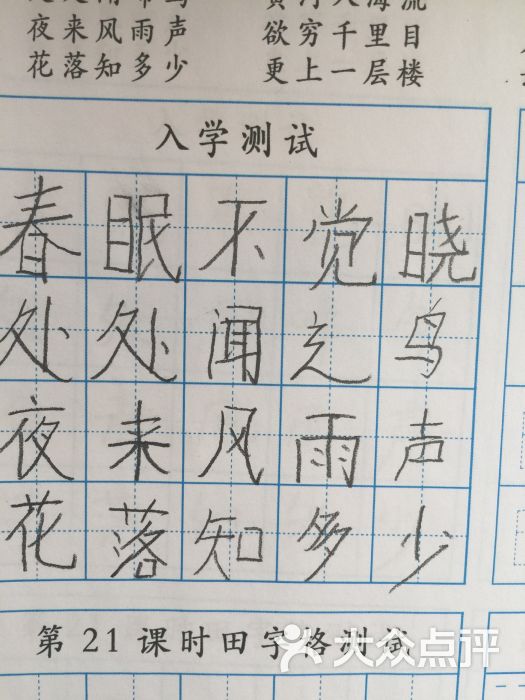 夜来风雨声
花落知多少
黄河入海流
欲穷千里目
更上一层楼
入学测试
春眠不觉晓
处处闻鸟
夜来风雨声
花落知多少
第21课时田字格测试
大众点评